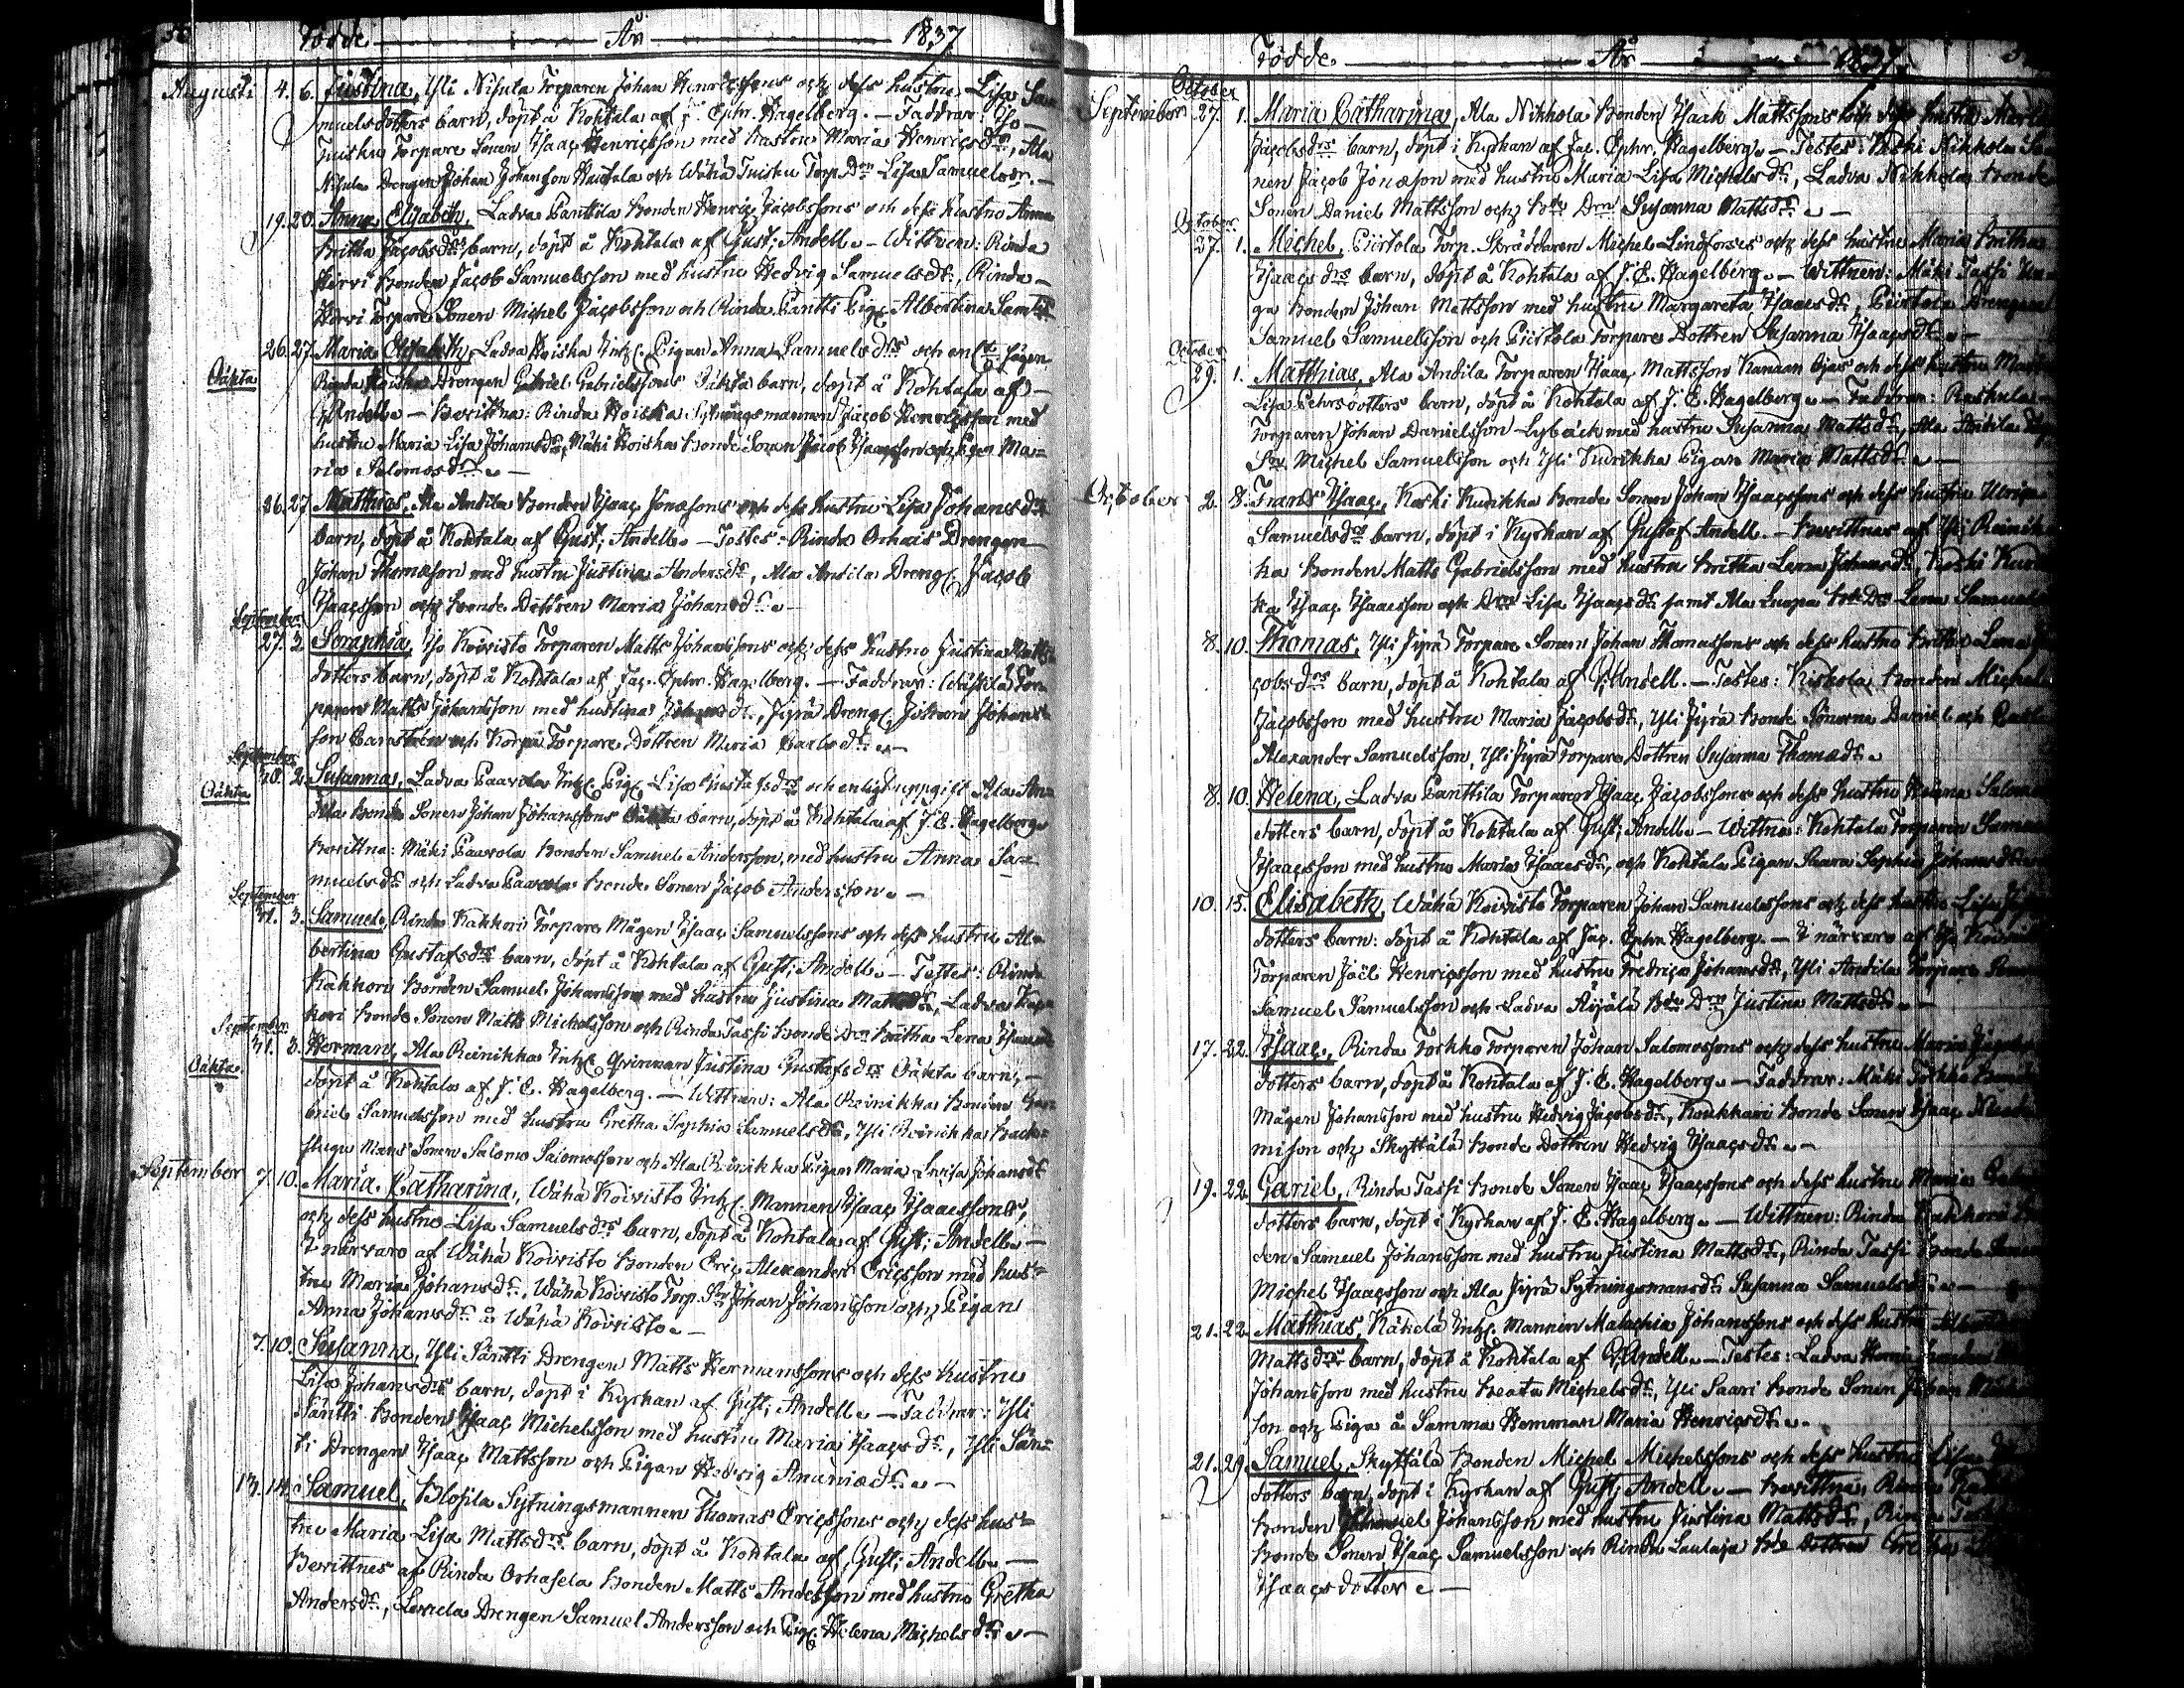 Födde År 1837
Augusti 4. 6. Justina, Yli Nisula Torparen Johan Henricssons och dess hustru Lisa Sa
muelsdotters barn, döpt å Kohtala af J. Ephr. Hagelberg. — Faddrar: Iso
Tuisku Torpare Sonen Isaac Henricsson med hustru Maria Henricsdr, Ala
Nisula Drengen Johan Johansson Hautala och Wähä Tuisku Torp. Don Lisa Samuelsdr. —
19. 20. Anna Elisabeth, Ladva Panttila bonden Henric Jacobssons och dess hustru Anna
Britha Jacobsdrs barn, döpt å Kohtala af Gust: Andell. — Wittnen: Rinda
Hirvi bonden Jacob Samuelsson med hustru Hedvig Samuelsdr, Rinda
Hirvi Torpare Sonen Michel Jacobsson och Rinda Pantti Pig. Albertina Samlsdr
26. 27. Maria Elisabeth, Ladva Hoiska Inh. Pigan Anna Samuelsdrs och enl. sägen
Oäkta Rinda Hoiska Drengen Gabriel Gabrielssons Oäkta barn, döpt å Kohtala af
G. Andell. — Bevittna: Rinda Hoiska Sytningsmannen Jacob Henricsson med
hustru Maria Lisa Johansdr, Mäki Hoiska bonde Sonen Jacob Isaacsson och Pigan Ma=
ria Salomosdr. —
26. 27. Matthias, Ala Andila Bonden Isaac Jonæsons och dess hustru Lisa Johansdrs
barn, döpt å Kohtala af Gust: Andell. — Testes: Rinda Orhais Drengen
Johan Thomæson med hustru Justina Andersdr, Ala Andila Dreng. Jacob
Isaacsson och bonde Dottren Maria Johansdr. —
September
27. 3. Seraphia, Iso Koivisto Torparen Matts Johanssons och dess hustru Justina Matts
dotters barn, döpt å Kohtala af Jac. Ephr. Hagelberg. — Faddrar: Wästilä Tor
paren Matts Johansson med hustrun Johansdr, Jyrä Dreng. Johan Johans
son och Korpi Torpare Dottren Maria Carlsdr. —
September
28. 2. Susanna, Ladva Paavola Inh. Pig. Lisa Gustafsdrs och enligt uppgift Ala An=
Oäkta dila bonde Sonen Johan Johanssons Oäkta barn, döpt å Kohtala af J. E. Hagelberg.
Bevittna: Mäki Paavola Bonden Samuel Andersson med hustru Anna Sa=
muelsdr och Ladva Paavola bonde Sonen Jacob Andersson. —
September
31. 3. Samuel, Rinda Kakkori Torpare Mågen Isaac Samuelssons och dess hustru Al=
bertina Gustafsdrs barn, döpt å Kohtala af Gust: Andell. — Testes: Rinda
Kakkori Bonden Samuel Johansson med hustru Justina Mattsdr, Ladva Kak
kori bonde Sonen Matts Michelsson och Rinda Tassi bonde Drn Britha Lena
September
31. 3. Herman, Ala Reinikka Inh. Qvinnan Justina Gustafsdrs Oäkta barn, —
Oäkta döpt å Kohtala af J. E. Hagelberg. — Wittnen: Ala Reinikka bonden Ga
briel Samuelsson med hustru Gretha Sophia Samuelsdr, Yli Reinikka Back=
stugu Mans Sonen Salomo Salomosson och Ala Reinikka Pigan Maria Lovisa Johansdr
September 7. 10. Maria Catharina, Wähä Koivisto Inh. Mannen Isaac Isaacssons,
och dess hustru Lisa Samuelsdrs barn, döpt å Kohtala af Gust: Andell. —
I närvaro af Wähä Koivisto Bonden Eric Alexander Ericsson med hus=
tru Maria Johansdr, Wähä Koivisto Torp. Sn Johan Johansson och Pigan
Anna Johansdr å Wähä Koivisto. —
7. 10. Susanna, Yli Säntti Drengen Matts Hermanssons och dess hustru
Lisa Johansdrs barn, döpt i Kyrkan af Gust: Andell. — Faddrar: Yli
Säntti bonden Isaac Michelsson med hustru Maria Isaacsdr, Yli Sän=
ti Drengen Isaac Mattsson och Pigan Hedvig Ananiædr. —
13. 14. Samuel, Blosila Sytningsmannen Thomas Ericssons och dess hus=
tru Maria Lisa Mattsdrs barn, döpt å Kohtala af Gust: Andell. —
Bevittnes af Rinda Orhasela bonden Matts Andersson med hustru Gretha
Andersdr, Levula Drengen Samuel Andersson och Pig. Helena Michelsdr. —
Födde År 1837.
October
September 27. 1. Maria Catharina, Ala Nikkola Bonden Isaak Mattssons och dess hustru Maria
Jacobsdrs barn, döpt i Kyrkan af Jac. Ephr. Hagelberg. — Testes: Koski Nikkola So
nen Jacob Jonæson med hustru Maria Lisa Michelsdr, Ladva Nikkola Bonde
Sonen Daniel Mattsson och Bde Drn Susanna Mattsdr. —
October
27. 1. Michel, Piirtola Torp. Skräddaren Michel Lindforss och dess hustru Maria Britha
Isaacsdrs barn, döpt å Kohtala af J. E. Hagelberg. — Wittnen: Mäki Tassi Un
ga bonden Johan Mattsson med hustru Margareta Isaacsdr, Piirtola Drengen
Samuel Samuelsson och Piirtola Torpare Dottren Susanna Isaacsdr. —
October
29. 1. Matthias, Ala Andila Torparen Isaac Mattsson Kanaan Ojas och dess hustru Maria
Lisa Pehrsdotters barn, döpt å Kohtala af J. E. Hagelberg. — Faddrar:
Torparen Johan Danielsson Lybäck med hustru Susanna Mattsdr, Ala Andila
Son Michel Samuelsson och Yli Kurikka Pigan Maria Mattsdr. —
October 2. 8. Frans Isaac, Koski Kurikka bonde Sonen Johan Isaacssons och dess hustru Ulrica
Samuelsdrs barn, döpt i Kyrkan af Gustaf Andell. — Bevittnes af Yli Reinik
ka bonden Matts Gabrielsson med hustru Britha Lena Johansdr, Koski Kurik
ka Isaac Isaacsson och Drn Lisa Isaacsdr samt Ala Luopa Bde Dr Lena Samuels
8. 10. Thomas, Yli Jyrä Torpare Sonen Johan Thomassons och dess hustru Britha Lena Ja
cobsdrs barn, döpt å Kohtala af G. Andell. — Testes: Kiskola bonden Michel
Jacobsson med hustru Maria Jacobsdr, Yli Jyrä bonde Sönerne Daniel och
Alexander Samuelsson, Yli Jyrä Torpare Dottren Susanna Thomædr. —
8. 10. Helena, Ladva Panttila Torparen Isaac Jacobssons och dess hustru Helena Salomo
dotters barn, döpt å Kohtala af Gust: Andell. — Wittna: Kohtala Torparen Samuel
Isaacsson med hustru Maria Isaacsdr, och Kohtala Pigan Saara Sophia Johansdr
10. 15. Elisabeth, Wähä Koivisto Torparen Johan Samuelssons och dess hustru Lisa
dotters barn: döpt å Kohtala af Jac. Ephr. Hagelberg. — I närvaro af Iso Koivisto
Torparen Joël Henricsson med hustru Fredrica Johansdr, Yli Andila Torpare Sonen
Samuel Samuelsson och Ladva Äijälä Bde Drn Justina Mattsdr. —
17. 22. Isaac, Rinda Torkko Torparen Johan Salomossons och dess hustru Maria
dotters barn, döpt å Kohtala af J. E. Hagelberg. — Faddrar: Mäki Torkko bonde
Mågen Johansson med hustru Hedvig Jacobsdr, Koukkari bonde Sonen Isaac
mison och Skyttälä bonde Dottren Hedvig Isaacsdr. —
19. 22. Gariel, Rinda Tassi bonde Sonen Isaac Isaacssons och dess hustru Maria
dotters barn, döpt i Kyrkan af J. E. Hagelberg. — Wittnen: Rinda Kakkori Bon
den Samuel Johansson med hustru Justina Mattsdr, Rinda Tassi bonde Sonen
Michel Isaacsson och Ala Jyrä Sytningsmansdr Susanna Samuelsdr. —
21. 22. Matthias, Kätkelä Inh. Mannen Malachia Johanssons och dess hustru
Mattsdrs barn, döpt å Kohtala af G. Andell. — Testes: Ladva Hemi bonden
Johansson med hustru Beata Michelsdr, Yli Saari bonde Sonen Johan
son och Piga å Samma Hemman Maria Henricsdr. —
21. 29. Samuel, Skyttälä bonden Michel Michelssons och dess hustru Lisa
dotters barn, döpt i Kyrkan af Gust: Andell. — Bevittna, Rinda
bonden Samuel Johansson med hustru Justina Mattsdr, Rinda
bonde Sonen Isaac Samuelsson och Rinda Laulaja Bde dottren Gretha
Isaacsdotter. —